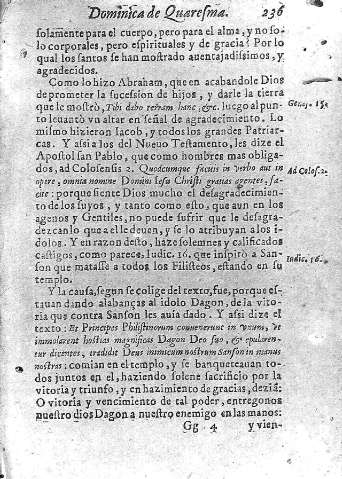 Dominica de Quaresma. 236
solamente para el cuerpo, pero para el alma, y no so-
lo corporales, pero espirituales y de gracia? Por lo
qual los santos se han mostrado auentajadissimos, y
agradecidos.
Como lo hizo Abraham, que en acabandole Dios
de prometer la sucession de hijos, y darle la tierra
que le mostrò, Tibi dabo terram hanc, &c. luego al pun-
Genes. 15.
to leuantò vn altar en señal de agradecimiento. Lo
mismo hizieron Iacob, y todos los grandes Patriar-
cas. Y assi a los del Nueuo Testamento, les dize el
Apostol san Pablo, que como hombres mas obliga-
dos, ad Colosensis 2. Quodcumque facitis in verbo aut in
Ad Coloss. 2.
opere, omnia nomine Domini Iesu Christi gratias agentes, fa-
cite: porque siente Dios mucho el desagradecimien-
to de los suyos, y tanto como esto, que aun en los
agenos y Gentiles, no puede sufrir que le desagra-
dezcan lo que a el le deuen, y se lo atribuyan a los i-
dolos. Y en razon desto, haze solemnes y calificados
castigos, como parece, Iudic. 16. que inspirò a San-
Iudic. 16.
son que matasse a todos los Filisteos, estando en su
templo.
Y la causa, segun se colige del texto, fue, porque es-
tauan dando alabanças al idolo Dagon, de la vito-
ria que contra Sanson les auia dado. Y assi dize el
texto: Et Principes Philistinorum conuenerunt in vnum, vt
immolarent hostias magnificas Dagon Deo suo, & epularen-
tur dicentes, tradidit Deus inimicum nostrum Sanson in manus
nostras: comian en el templo, y se banqueteauan to-
dos juntos en el, haziendo solene sacrificio por la
vitoria y triunfo, y en hazimiento de gracias, dezià:
O vitoria y vencimiento de tal poder, entregonos
nuestro dios Dagon a nuestro enemigo en las manos:
Gg 4 y vien-